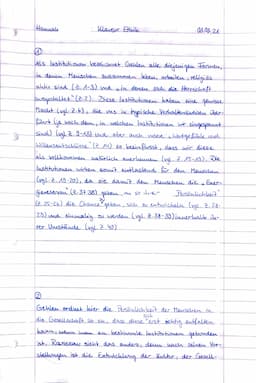 Hannah Klausur Ethik 08.02.21
①
Als Institutionen bezeichnet Gehlen alle diejenigen Formen,
in denen Menschen zusammen leben, arbeiten, religiös
aktiv sind (Z. 1-3) und „in denen sich die Herrschaft
ausgestaltet" (Z. 2). Diese Institutionen haben eine gewisse
Macht (vgl. Z. 6), die uns in typische Verhaltensweisen über-
führt (je nach dem, in welchen Institutionen wir eingespannt
sind) (vgl. Z. 9-13) und aber auch unsere „Wertgefühle und
Willensentschlüsse" (Z. 14) so beeinflusst, dass wir diese
als vollkommen natürlich anerkennen (vgl. Z. 15-18). Die
Institutionen wirken somit entlastend für den Menschen
(vgl. Z. 19-20), da sie damit den Menschen die
(Z. 37-38) geben, Persönlichkeit"
(Z. 25-26) die Chance geben, sich zu entwickeln (vgl. Z. 28-
29) und einmalig zu werden (vgl. Z. 38-39) innerhalb ih-
rer Umstände (vgl. Z. 40)
②
Gehlen ordnet hier die Persönlichkeit der Menschen in
die Gesellschaft so ein, dass diese sich erst richtig entfalten
kann, wenn man an bestimmte Institutionen gebunden
ist. Rousseau sieht das anders, denn nach seinen Vor-
stellungen ist die Entwicklung der Kultur, der Gesell-